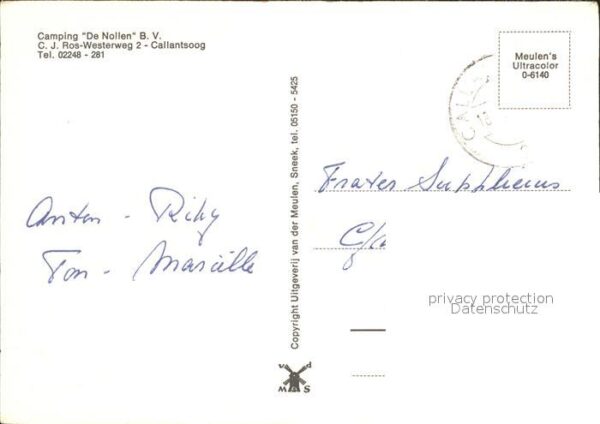 Camping "De Nollen" B. V.
C. J. Ros-Westerweg 2 - Callantsoog
Tel. 02248 - 281
Meulen's
Ultracolor
0-6140
CALL
Copyright Uitgeverij van der Meulen, Sneek, tel. 05150 - 5425
Anton - Riky
Ton - Marcille
Frater
privacy protection
Datenschutz
v d
M S